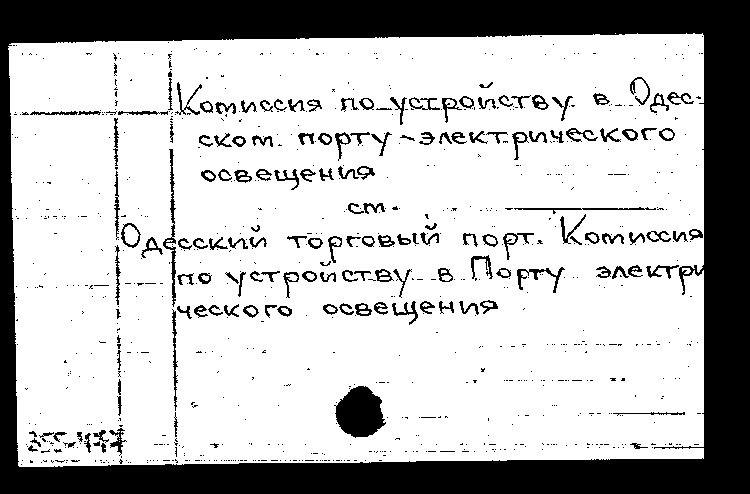 Комиссия по устройству в Одес-
ском порту электрического
освещения
см.
Одесский торговый порт. Комиссия
по устройству в Порту электри
ческого освещения